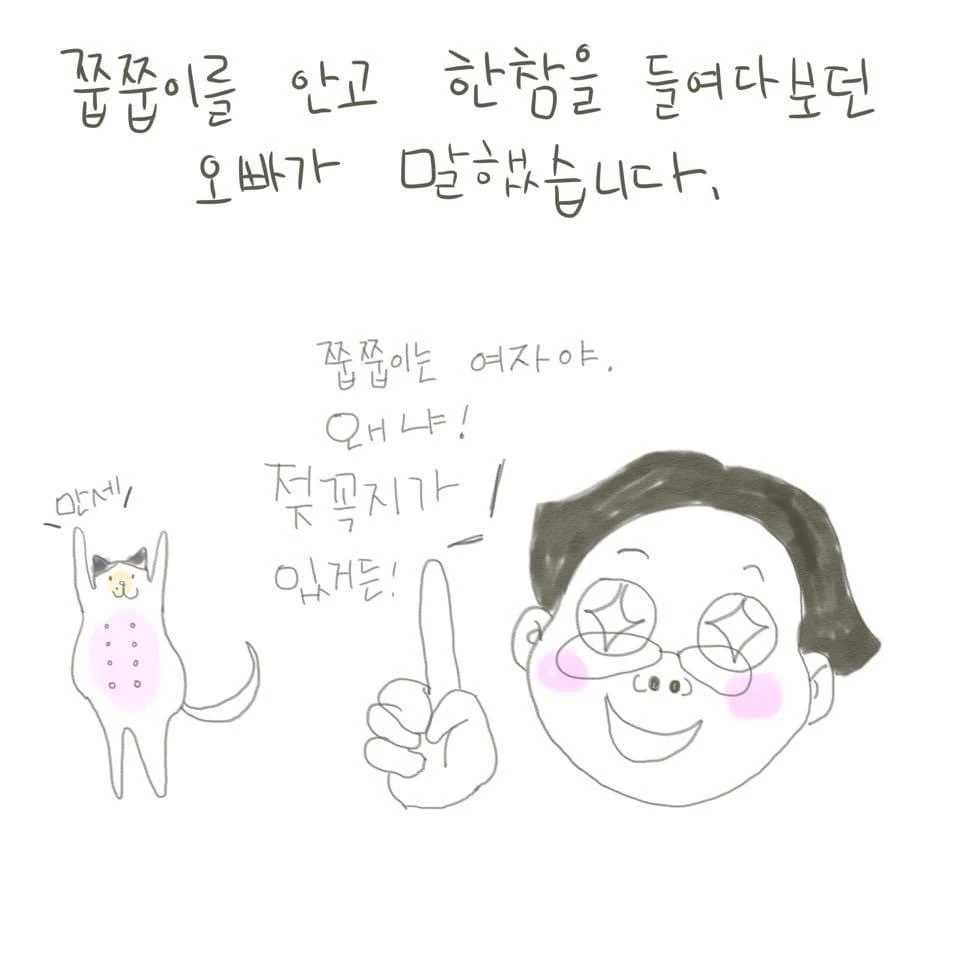 쭙쭙이를 안고 한참을 들여다보던
오빠가 말했습니다.
쭙쭙이는 여자야.
왜냐!
젖꼭지가
있거든!
만세